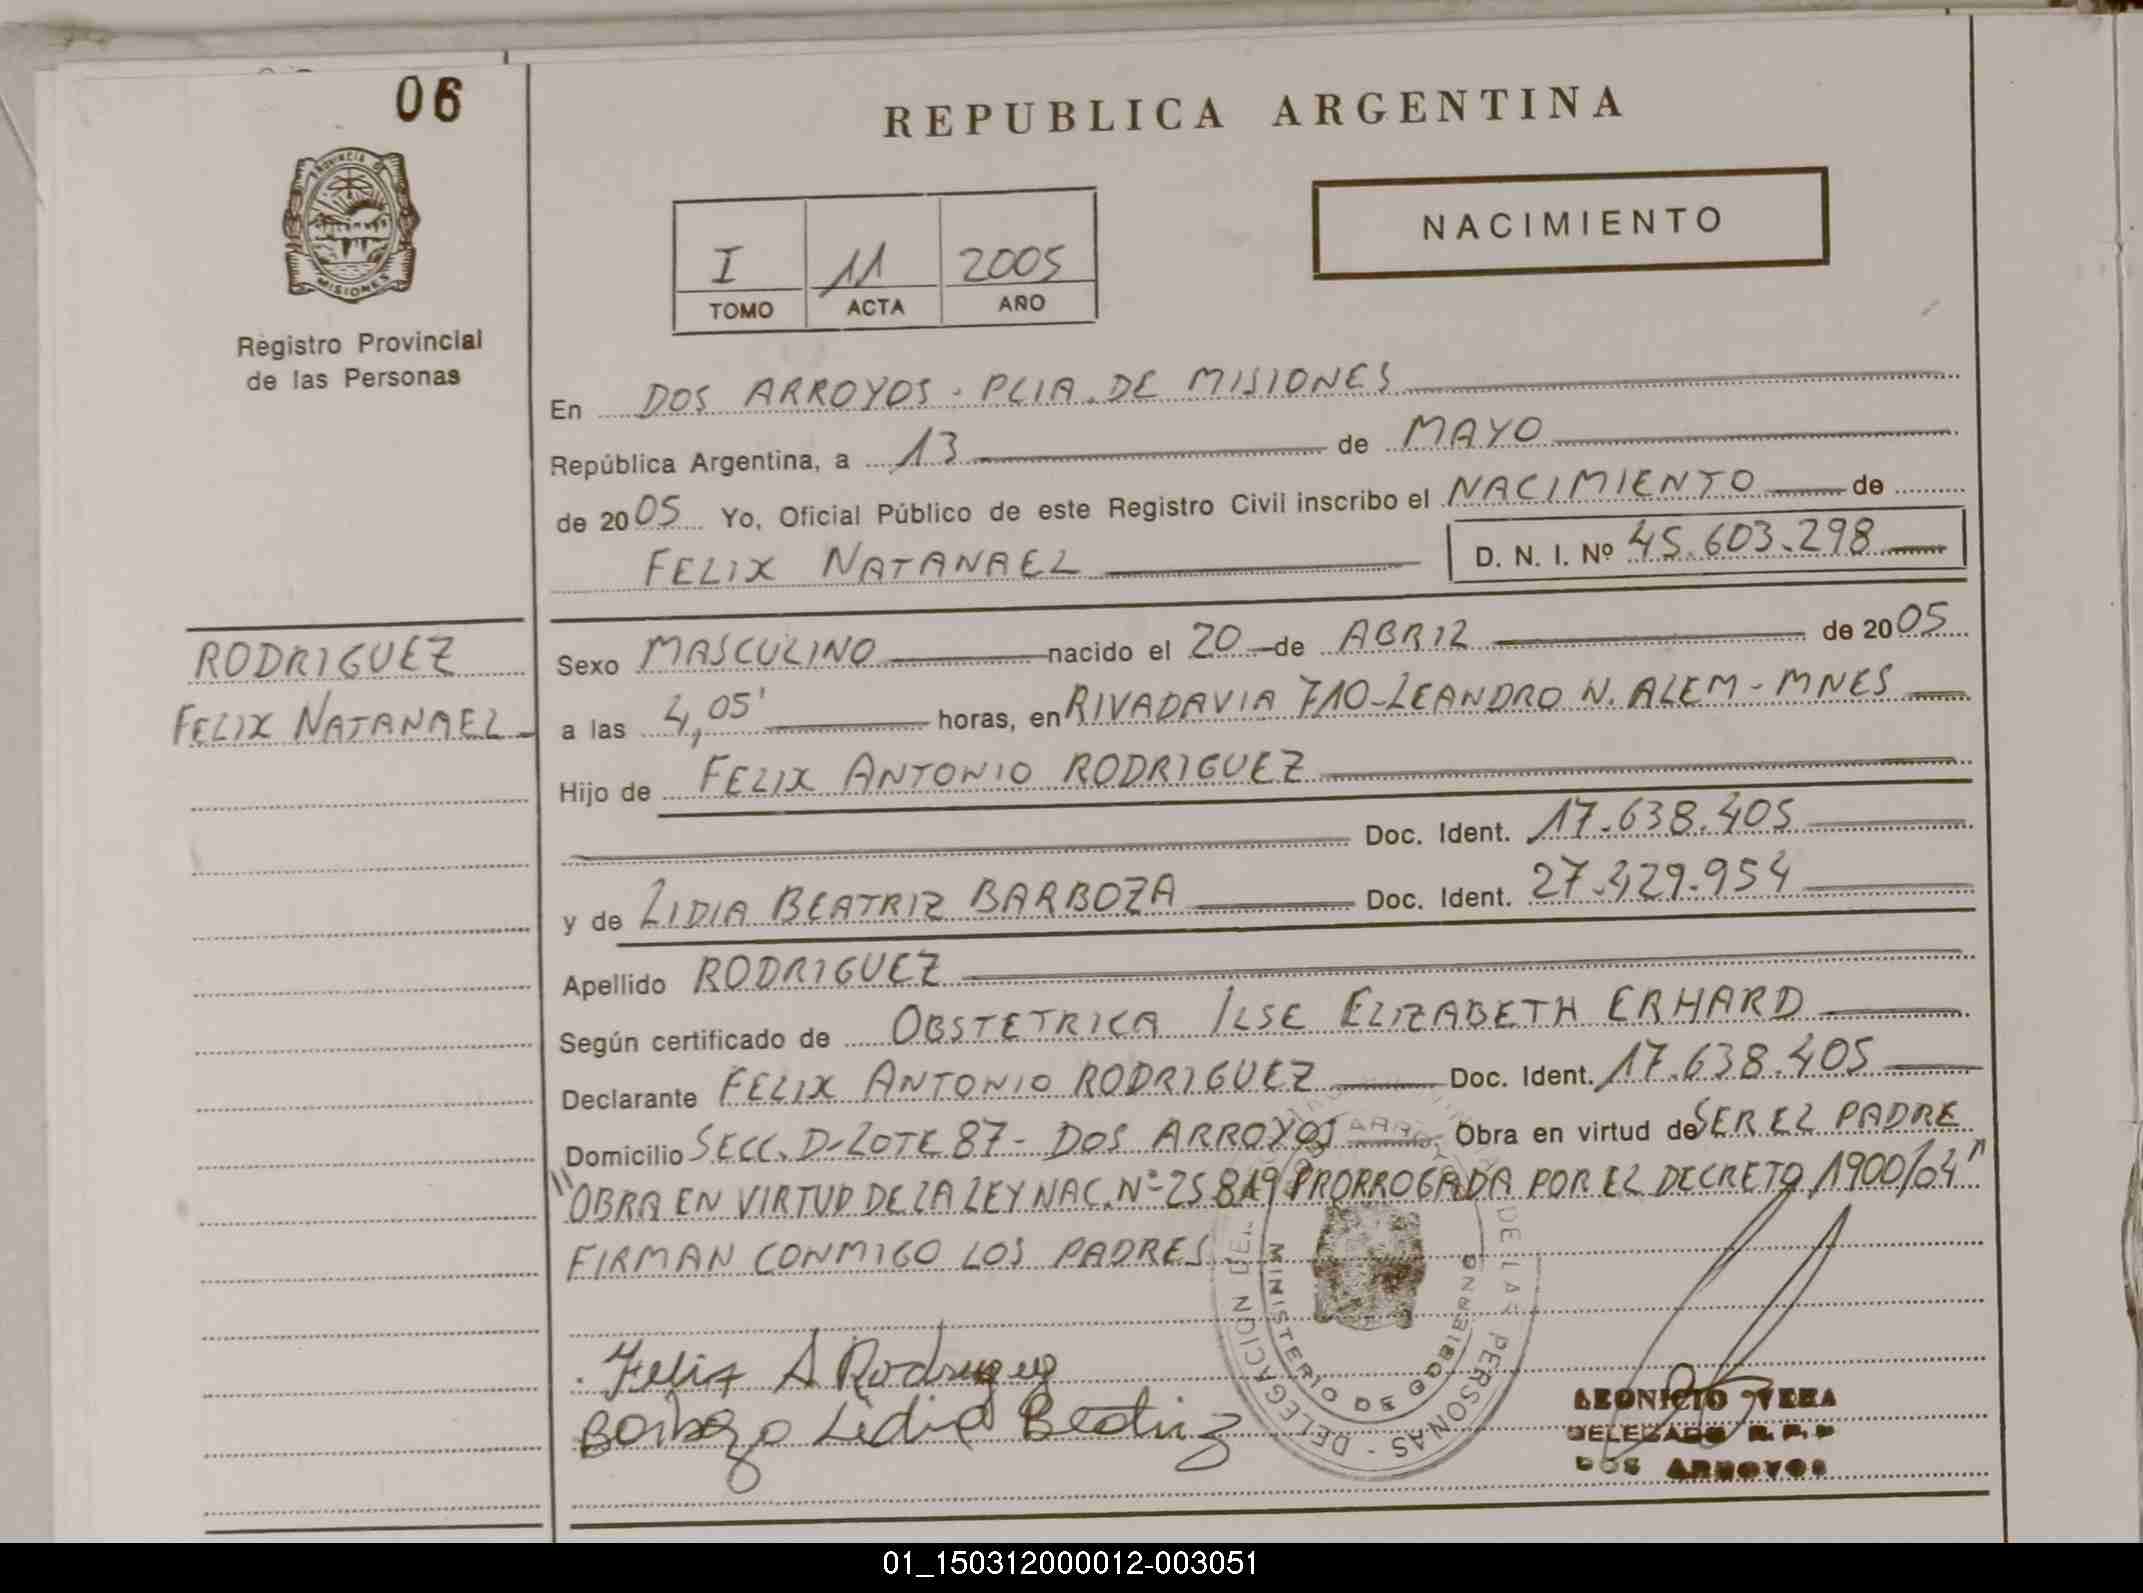 06
PROVINCIA DE
MISIONES
Registro Provincial
de las Personas
REPUBLICA ARGENTINA
NACIMIENTO
I 11 2005
TOMO ACTA AÑO
En DOS ARROYOS. PCIA. DE MISIONES
República Argentina, a 13 de MAYO
de 2005 Yo, Oficial Público de este Registro Civil inscribo el NACIMIENTO de
FELIX NATANAEL D. N. I. Nº 45.603.298
RODRIGUEZ
FELIX NATANAEL
Sexo MASCULINO nacido el 20 de ABRIL de 2005
a las 4,05' horas, en RIVADAVIA 710-LEANDRO N. ALEM - MNES
Hijo de FELIX ANTONIO RODRIGUEZ
Doc. Ident. 17.638.405
y de LIDIA BEATRIZ BARBOZA Doc. Ident. 27.429.954
Apellido RODRIGUEZ
Según certificado de OBSTETRICA ILSE ELIZABETH ERHARD
Declarante FELIX ANTONIO RODRIGUEZ Doc. Ident. 17.638.405
Domicilio SECC. D-LOTE 87- DOS ARROYOS Obra en virtud de SER EL PADRE
"OBRA EN VIRTUD DE LA LEY NAC. Nº 25819 PRORROGADA POR EL DECRETO 1900/04"
FIRMAN CONMIGO LOS PADRES
Felix A Rodriguez
Barboza Lidia Beatriz
DELEGACION DEL DE LAS PERSONAS
MINISTERIO DE GOBIERNO
LEONICIO VERA
DELEGADO R.P.P
DOS ARROYOS
01_150312000012-003051